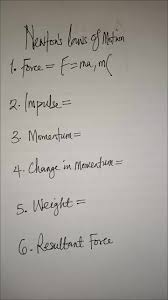 Newton's Laws of Motion
1. Force = F=ma, m(
2. Impulse =
3. Momentum =
4. Change in Momentum =
5. Weight =
6. Resultant Force